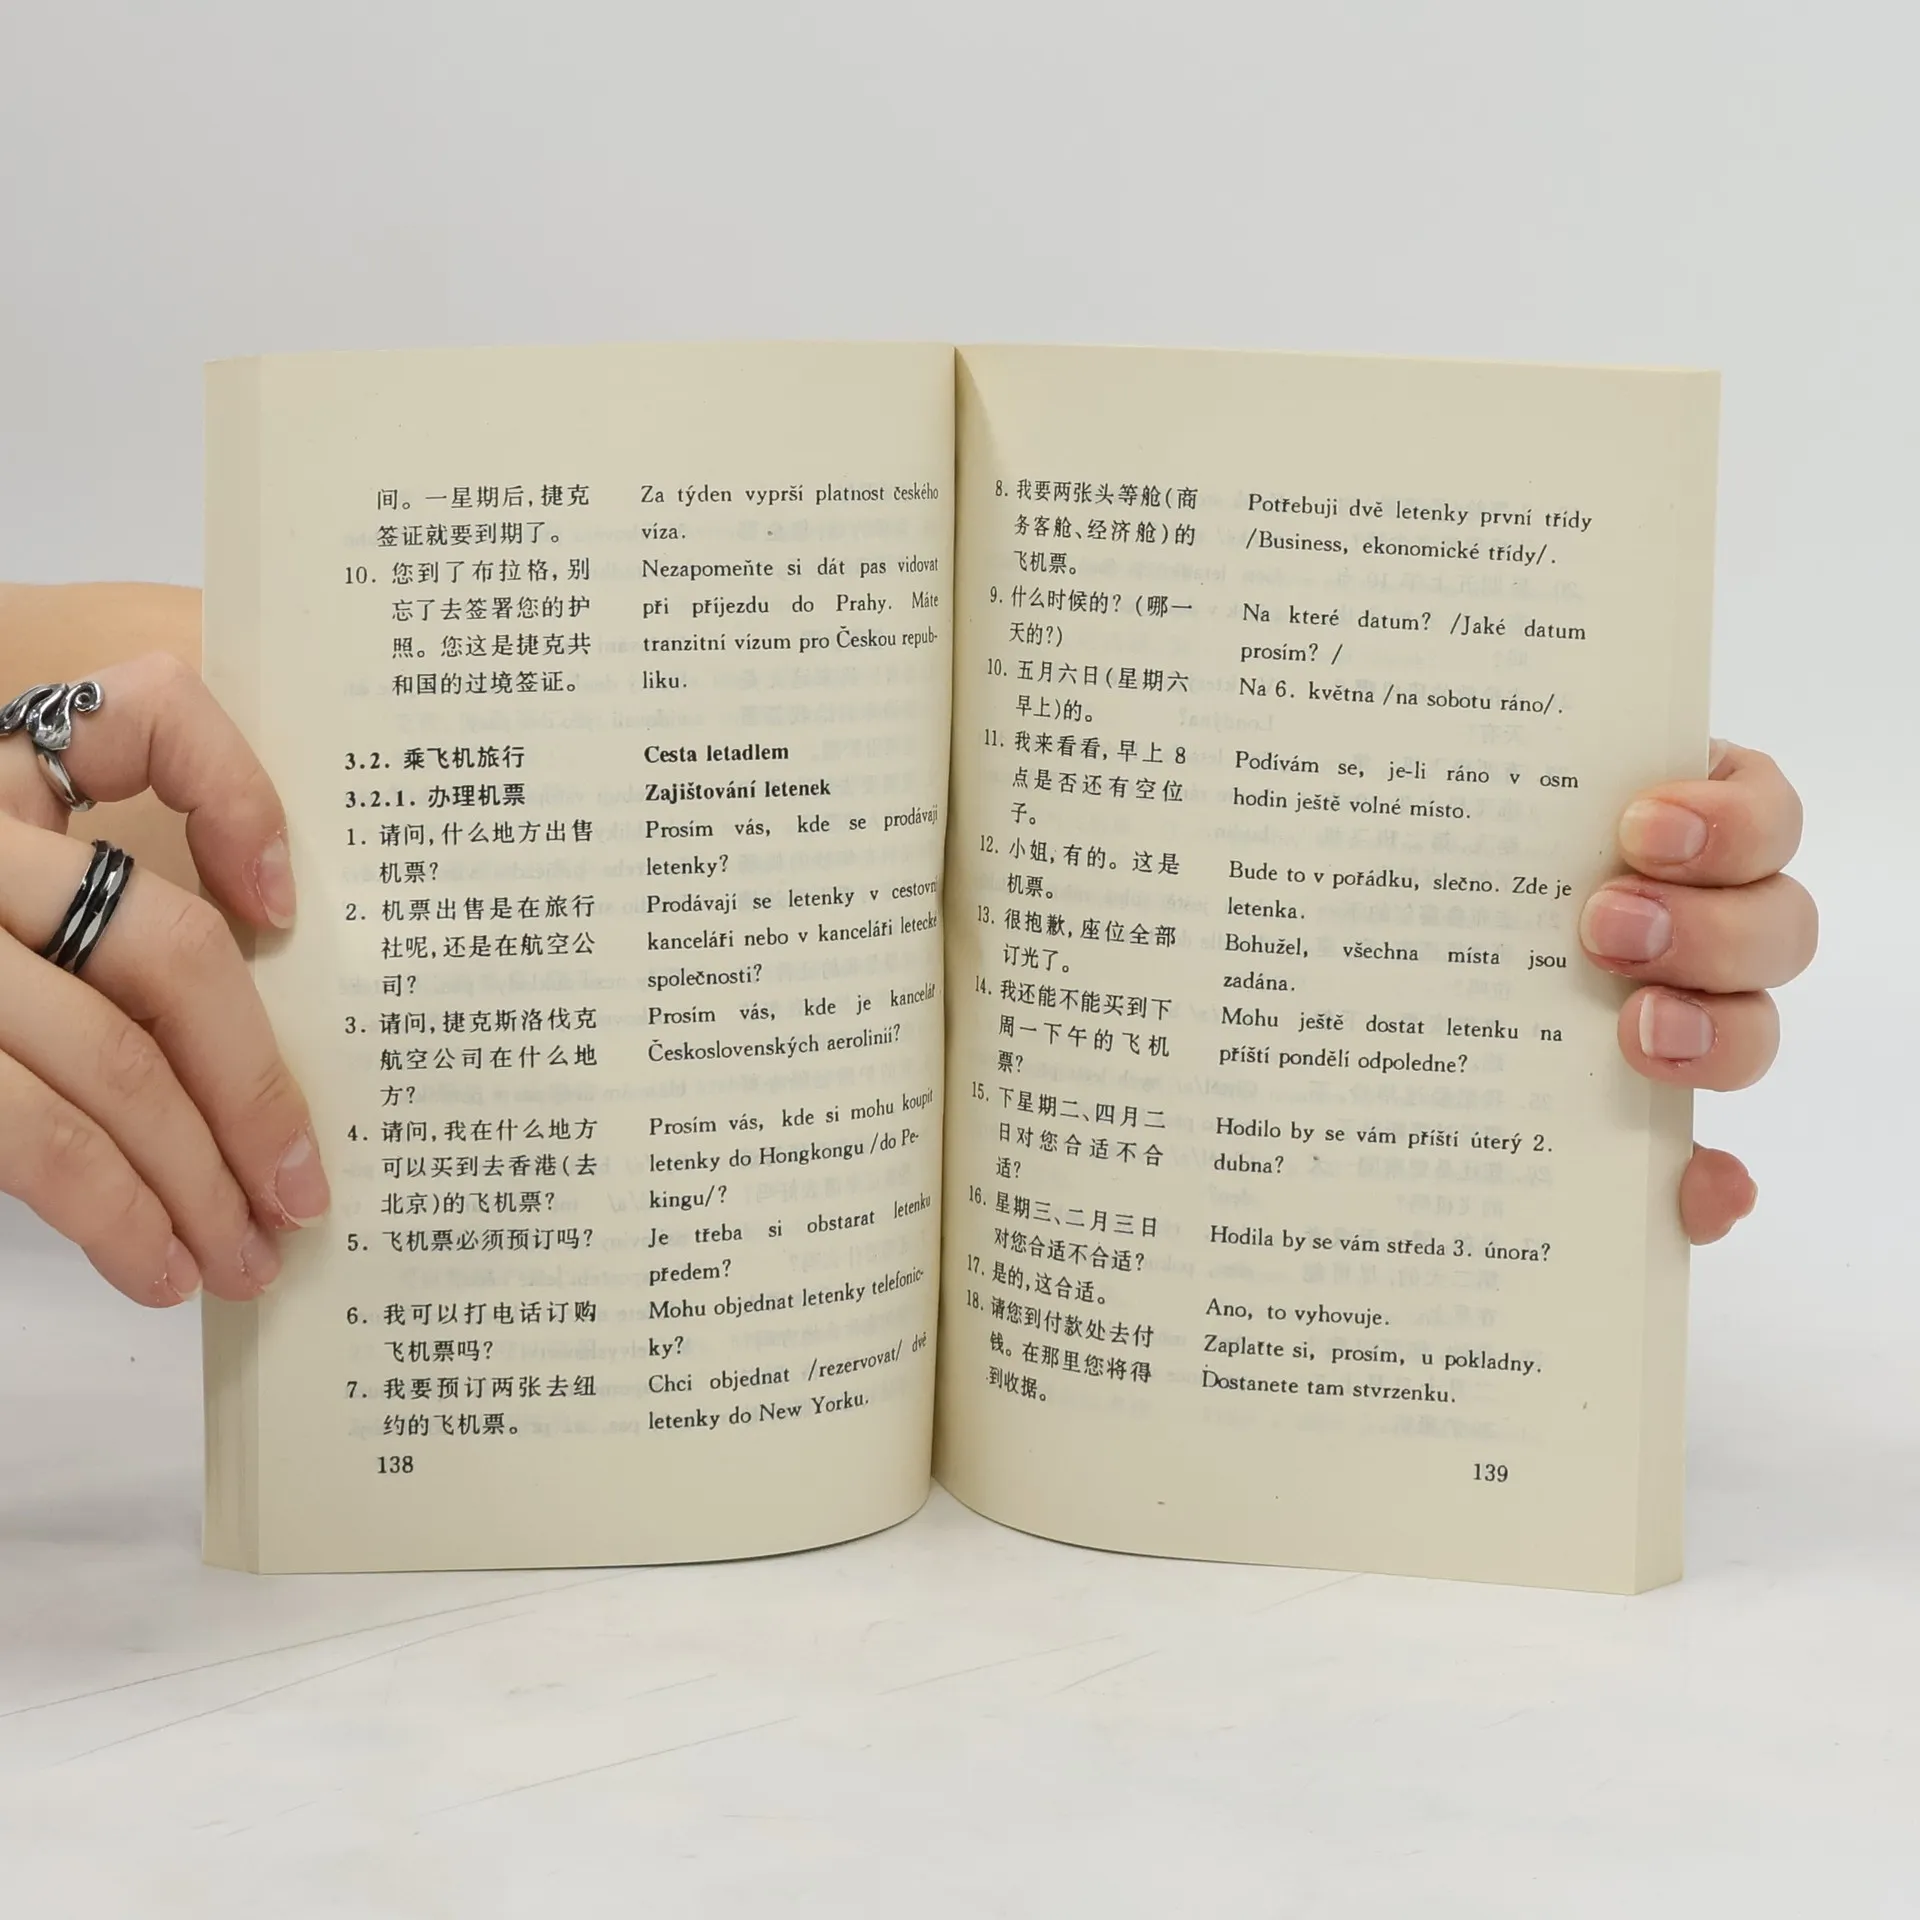 间。一星期后,捷克
签证就要到期了。
Za týden vyprší platnost českého
víza.
10. 您到了布拉格,别
忘了去签署您的护
照。您这是捷克共
和国的过境签证。
Nezapomeňte si dát pas vidovat
při příjezdu do Prahy. Máte
tranzitní vízum pro Českou repub-
liku.
3.2. 乘飞机旅行
Cesta letadlem
3.2.1. 办理机票
Zajištování letenek
1. 请问,什么地方出售
机票?
Prosím vás, kde se prodávají
letenky?
2. 机票出售是在旅行
社呢,还是在航空公
司?
Prodávají se letenky v cestovní
kanceláři nebo v kanceláři letecké
společnosti?
3. 请问,捷克斯洛伐克
航空公司在什么地
方?
Prosím vás, kde je kancelář
Československých aerolinií?
4. 请问,我在什么地方
可以买到去香港(去
北京)的飞机票?
Prosím vás, kde si mohu koupit
letenky do Hongkongu /do Pe-
kingu/?
5. 飞机票必须预订吗?
Je třeba si obstarat letenku
předem?
6. 我可以打电话订购
飞机票吗?
Mohu objednat letenky telefonic-
ky?
7. 我要预订两张去纽
约的飞机票。
Chci objednat /rezervovat/ dvě
letenky do New Yorku.
138
8. 我要两张头等舱(商
务客舱、经济舱)的
飞机票。
Potřebuji dvě letenky první třídy
/Business, ekonomické třídy/.
9. 什么时候的? (哪一
天的?)
Na které datum? /Jaké datum
prosím? /
10. 五月六日(星期六
早上)的。
Na 6. května /na sobotu ráno/.
11. 我来看看,早上 8
点是否还有空位
子。
Podívám se, je-li ráno v osm
hodin ještě volné místo.
12. 小姐,有的。这是
机票。
Bude to v pořádku, slečno. Zde je
letenka.
13. 很抱歉,座位全部
订光了。
Bohužel, všechna místa jsou
zadána.
14. 我还能不能买到下
周一下午的飞机
票?
Mohu ještě dostat letenku na
příští pondělí odpoledne?
15. 下星期二、四月二
日对您合适不合
适?
Hodilo by se vám příští úterý 2.
dubna?
16. 星期三、二月三日
对您合适不合适?
Hodila by se vám středa 3. února?
17. 是的,这合适。
Ano, to vyhovuje.
18. 请您到付款处去付
钱。在那里您将得
到收据。
Zaplaťte si, prosím, u pokladny.
Dostanete tam stvrzenku.
139